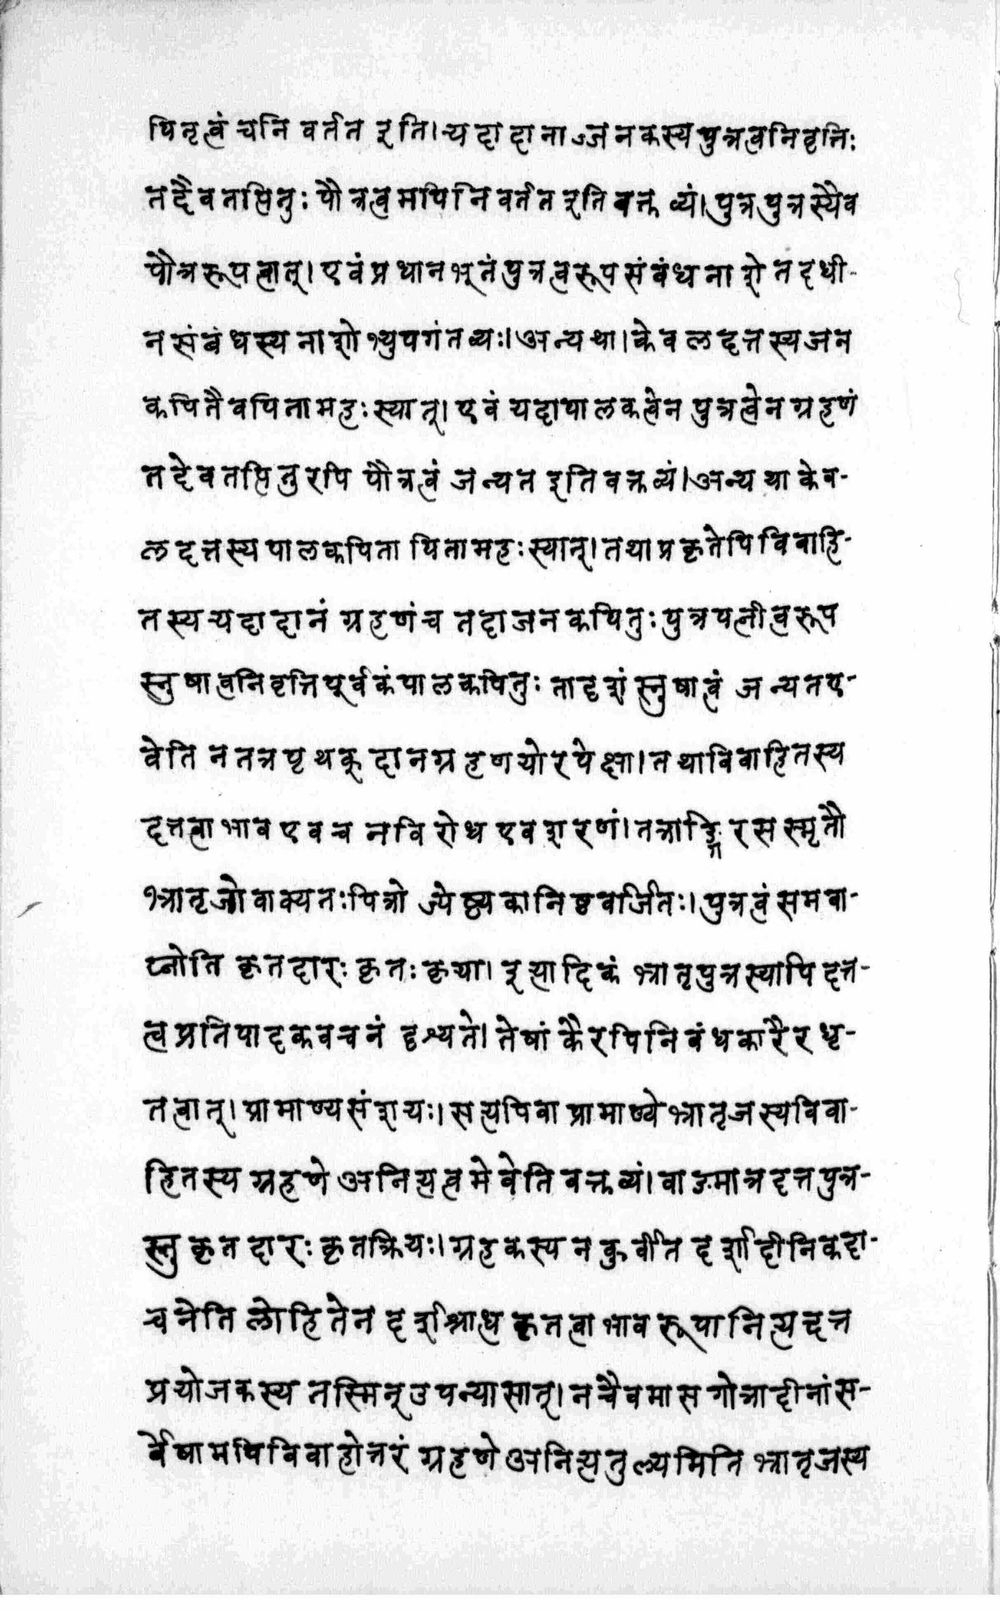 पितृत्वं च निवर्तत इति। यदादानाज्जनकस्य पुत्रत्वनिवृत्तिः
तदैव तप्पितुः पौत्रत्वमपि निवर्तत इति वक्तव्यं। पुत्रपुत्रस्यैव
पौत्ररूपत्वात्। एवं प्रधानभूतं पुत्रत्वरूपसंबंधनाशे तदधी-
न संबंधस्य नाशोभ्युपगंतव्यः। अन्यथा। केवलदत्तस्य जन
कपितैव पितामहः स्यात्। एवं यदापालकत्वेन पुत्रत्वेन ग्रहणं
तदेव तप्पितुरपि पौत्रत्वं जन्यत इति वक्तव्यं। अन्यथा केव-
लदत्तस्य पालकपिता पितामहः स्यात्। तथा प्रकृतेपि विवाहि-
तस्य यदा दानं ग्रहणं च तदा जनकपितुः पुत्रपत्नीत्वरूप
स्नुषात्वनिवृत्तिपूर्वकं पालकपितुः तादृशं स्नुषात्वं जन्यत ए-
वेति न तत्र पृथक् दानग्रहणयोरपेक्षा। तथा विवाहितस्य
दत्तत्वाभाव एव च नविरोध एव शरणं। तत्राङ्गिरसस्मृतौ
भ्रातृजो वाक्यतः पित्रो ज्येष्ठ्यकानिष्ठवर्जितः। पुत्रत्वं समवा-
प्नोति कृतदारः कृतः कृथा। इत्यादिकं भ्रातृपुत्रस्यापि दत्त-
त्वप्रतिपादकवचनं दृश्यते। तेषां कैरपि निबंधकारैरधृ-
तत्वात्। प्रामाण्यसंशयः। सत्यपि वा प्रामाण्ये भ्रातृजस्य विवा-
हितस्य ग्रहणे अनित्यत्वमेवेति वक्तव्यं। वाङ्मात्रदत्तपुत्र-
स्तु कृतदारः कृतक्रियः। ग्रहकस्य न कुर्वीत दर्शादीनि कदा-
चनेति लोहितेन दर्शश्राध कृतत्वाभावरूपानित्यदत्त
प्रयोजकस्य तस्मिन् उपन्यासात्। न चैवमासगोत्रादीनां स-
र्वेषामपि विवाहोत्तरं ग्रहणे अनित्यतुल्यमिति भ्रातृजस्य